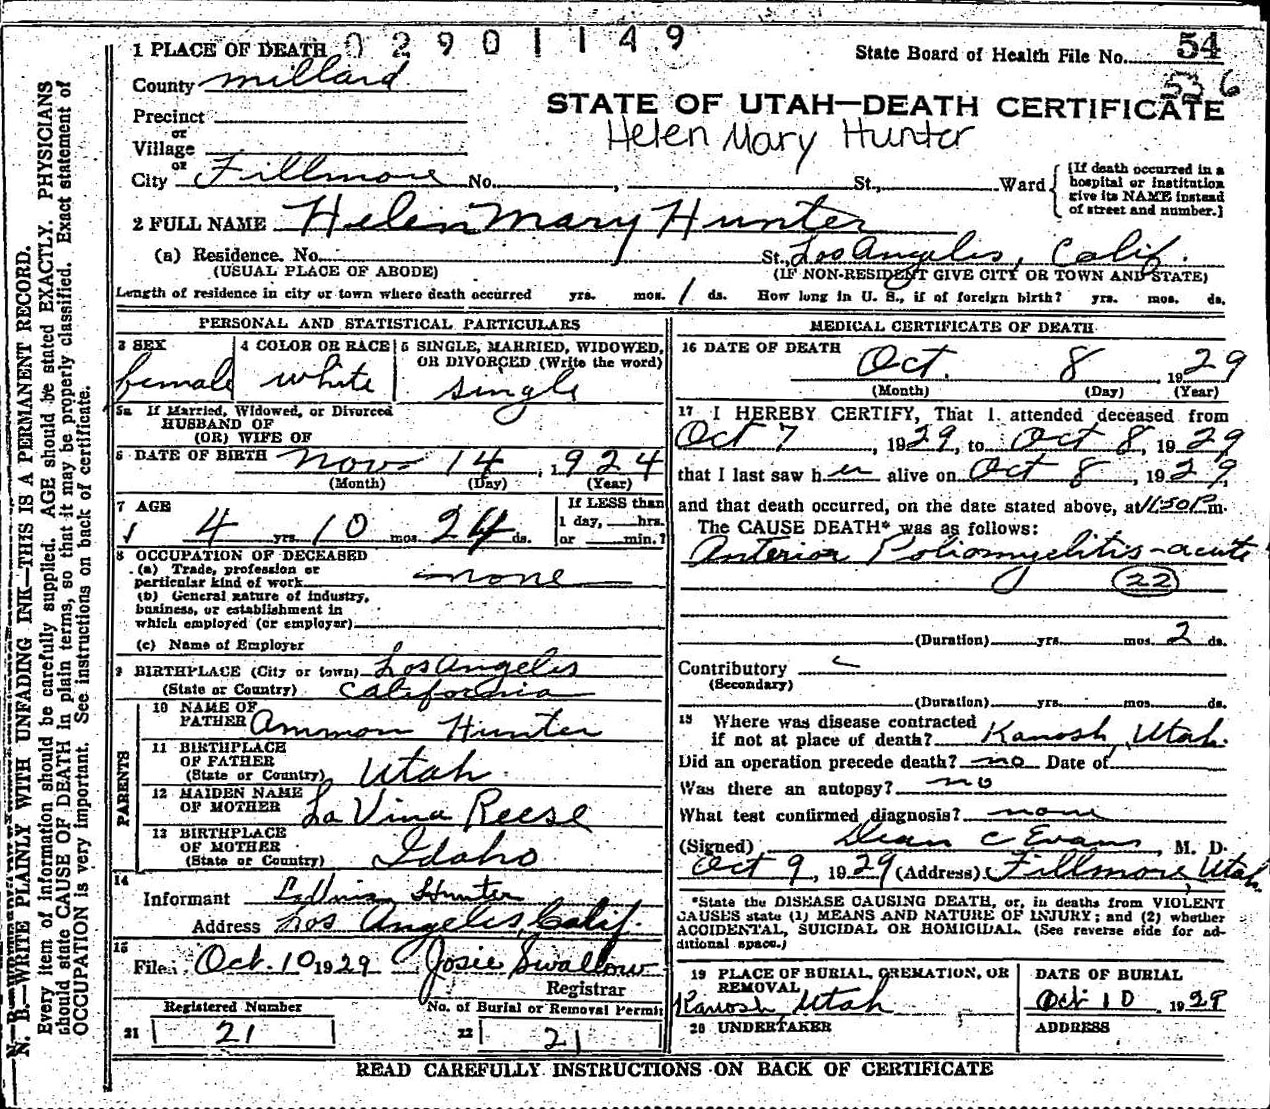 1 PLACE OF DEATH 02901149
State Board of Health File No. 54
536
County Millard
STATE OF UTAH—DEATH CERTIFICATE
Helen Mary Hunter
Precinct
or
Village
or
City Fillmore No. , St., Ward
[If death occurred in a
hospital or institution
give its NAME instead
of street and number.]
2 FULL NAME Helen Mary Hunter
(a) Residence. No. St., Los Angeles, Calif.
(USUAL PLACE OF ABODE) (IF NON-RESIDENT GIVE CITY OR TOWN AND STATE)
Length of residence in city or town where death occurred yrs. mos. 1 ds. How long in U. S., if of foreign birth? yrs. mos. ds.
PERSONAL AND STATISTICAL PARTICULARS
3 SEX
female
4 COLOR OR RACE
white
5 SINGLE, MARRIED, WIDOWED,
OR DIVORCED (Write the word)
single
5a If Married, Widowed, or Divorced
HUSBAND OF
(OR) WIFE OF
6 DATE OF BIRTH Nov 14, 1924
(Month) (Day) (Year)
7 AGE
4 yrs. 10 mos. 24 ds.
If LESS than
1 day, hrs.
or min.?
8 OCCUPATION OF DECEASED
(a) Trade, profession or
particular kind of work none
(b) General nature of industry,
business, or establishment in
which employed (or employer)
(c) Name of Employer
9 BIRTHPLACE (City or town) Los Angeles
(State or Country) California
PARENTS
10 NAME OF
FATHER Ammon Hunter
11 BIRTHPLACE
OF FATHER
(State or Country) Utah
12 MAIDEN NAME
OF MOTHER La Vina Reese
13 BIRTHPLACE
OF MOTHER
(State or Country) Idaho
14
Informant Hunter
Address Los Angeles, Calif.
15
Filed Oct. 10 1929 Josie Swallow
Registrar
Registered Number
21 21
No. of Burial or Removal Permit
22 21
MEDICAL CERTIFICATE OF DEATH
16 DATE OF DEATH
Oct. 8, 1929
(Month) (Day) (Year)
17 I HEREBY CERTIFY, That I attended deceased from
Oct 7, 1929, to Oct 8, 1929
that I last saw her alive on Oct 8, 1929.
and that death occurred, on the date stated above, at 11:50 P m.
The CAUSE DEATH* was as follows:
Anterior Poliomyelitis-acute
22
(Duration) yrs. mos. 2 ds.
Contributory
(Secondary)
(Duration) yrs. mos. ds.
18 Where was disease contracted
if not at place of death? Kanosh, Utah.
Did an operation precede death? no Date of
Was there an autopsy? no
What test confirmed diagnosis? none
(Signed) Dean C Evans, M. D.
Oct 9, 1929 (Address) Fillmore, Utah
*State the DISEASE CAUSING DEATH, or, in deaths from VIOLENT
CAUSES state (1) MEANS AND NATURE OF INJURY; and (2) whether
ACCIDENTAL, SUICIDAL OR HOMICIDAL. (See reverse side for ad-
ditional space.)
19 PLACE OF BURIAL, CREMATION, OR
REMOVAL
Kanosh, Utah
DATE OF BURIAL
Oct 10, 1929
20 UNDERTAKER
ADDRESS
READ CAREFULLY INSTRUCTIONS ON BACK OF CERTIFICATE
N. B.—WRITE PLAINLY WITH UNFADING INK—THIS IS A PERMANENT RECORD.
Every item of information should be carefully supplied. AGE should be stated EXACTLY. PHYSICIANS
should state CAUSE OF DEATH in plain terms, so that it may be properly classified. Exact statement of
OCCUPATION is very important. See instructions on back of certificate.